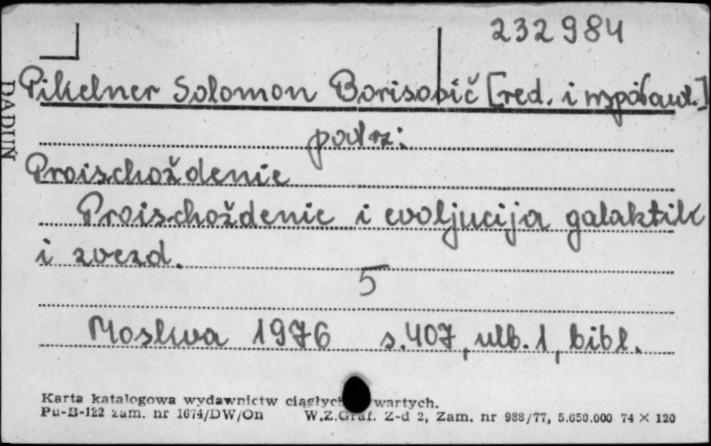 232984
Pikelner Solomon Borisovič [red. i współaut.]
patrz:
Proischoždenie
Proischoždenie i evoljucija galaktik
i zvezd.
5
Moskwa 1976 s. 407, ulb. 1, bibl.
Karta katalogowa wydawnictw ciągłych wartych.
Pu-B-122 zam. nr 1674/DW/On W.Z.Graf. Z-d 2, Zam. nr 988/77, 5.650.000 74 × 120
DADUŃ